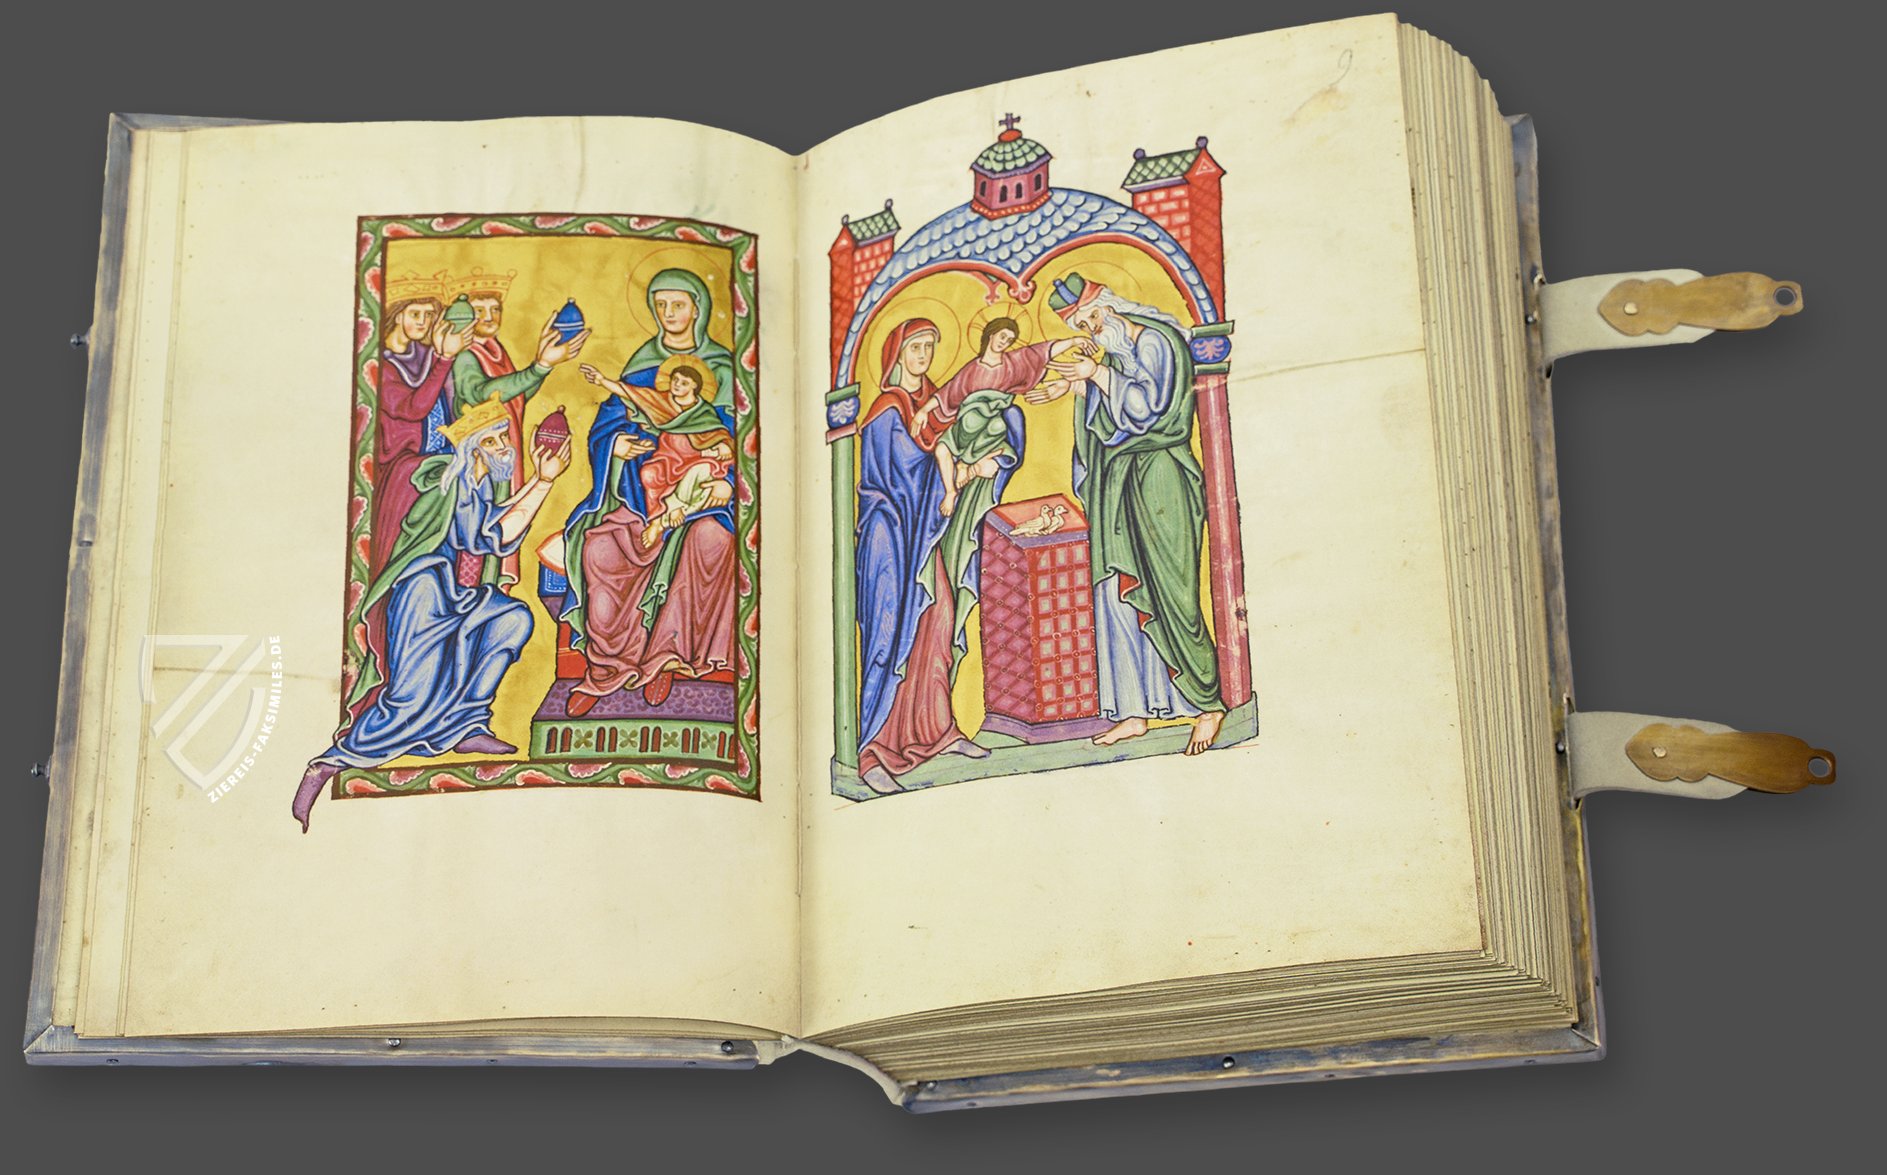 9
ZIEREIS-FAKSIMILES.DE